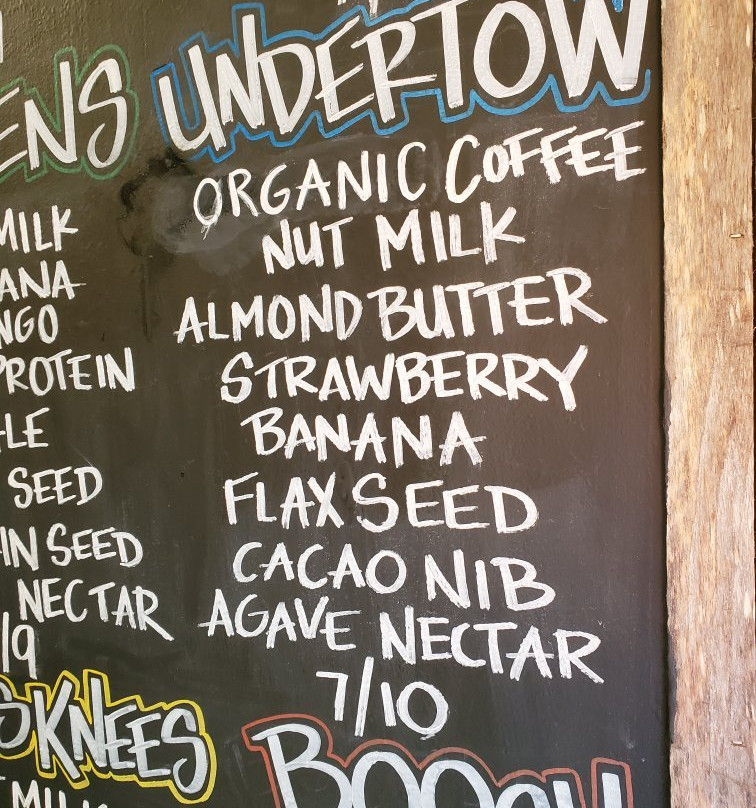 ENS
MILK
ANA
NGO
PROTEIN
LE
SEED
IN SEED
NECTAR
/9
KNEES
MILK
UNDERTOW
ORGANIC COFFEE
NUT MILK
ALMOND BUTTER
STRAWBERRY
BANANA
FLAX SEED
CACAO NIB
AGAVE NECTAR
7/10